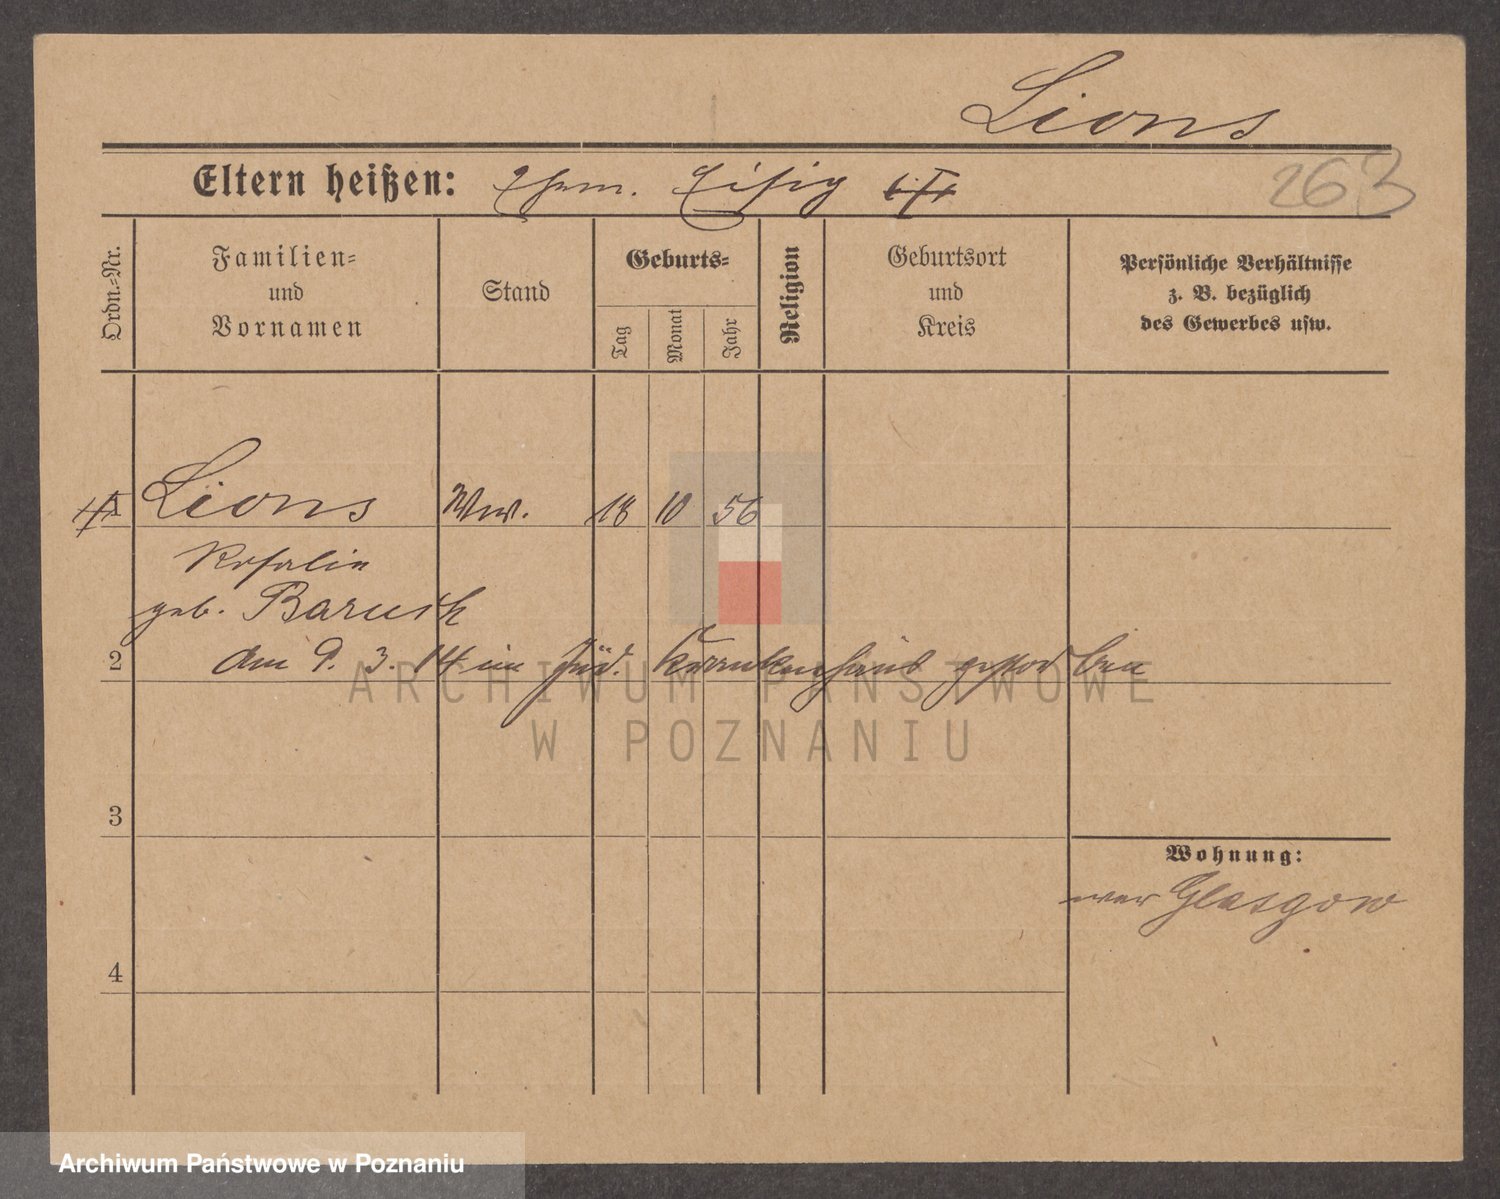 Lions
Eltern heißen: Ehem. Eisig
263
Ordn.-Nr.
Familien-
und
Vornamen
Stand
Geburts-
Tag
Monat
Jahr
Religion
Geburtsort
und
Kreis
Persönliche Verhältnisse
z. B. bezüglich
des Gewerbes usw.
1 Lions Ww. 18 10 56
Rosalie
geb. Baruch
2 Am 9. 3. 14 im Jüd. Krankenhaus gestorben
ARCHIWUM PAŃSTWOWE
W POZNANIU
3
Wohnung:
war Glasgow
4
Archiwum Państwowe w Poznaniu